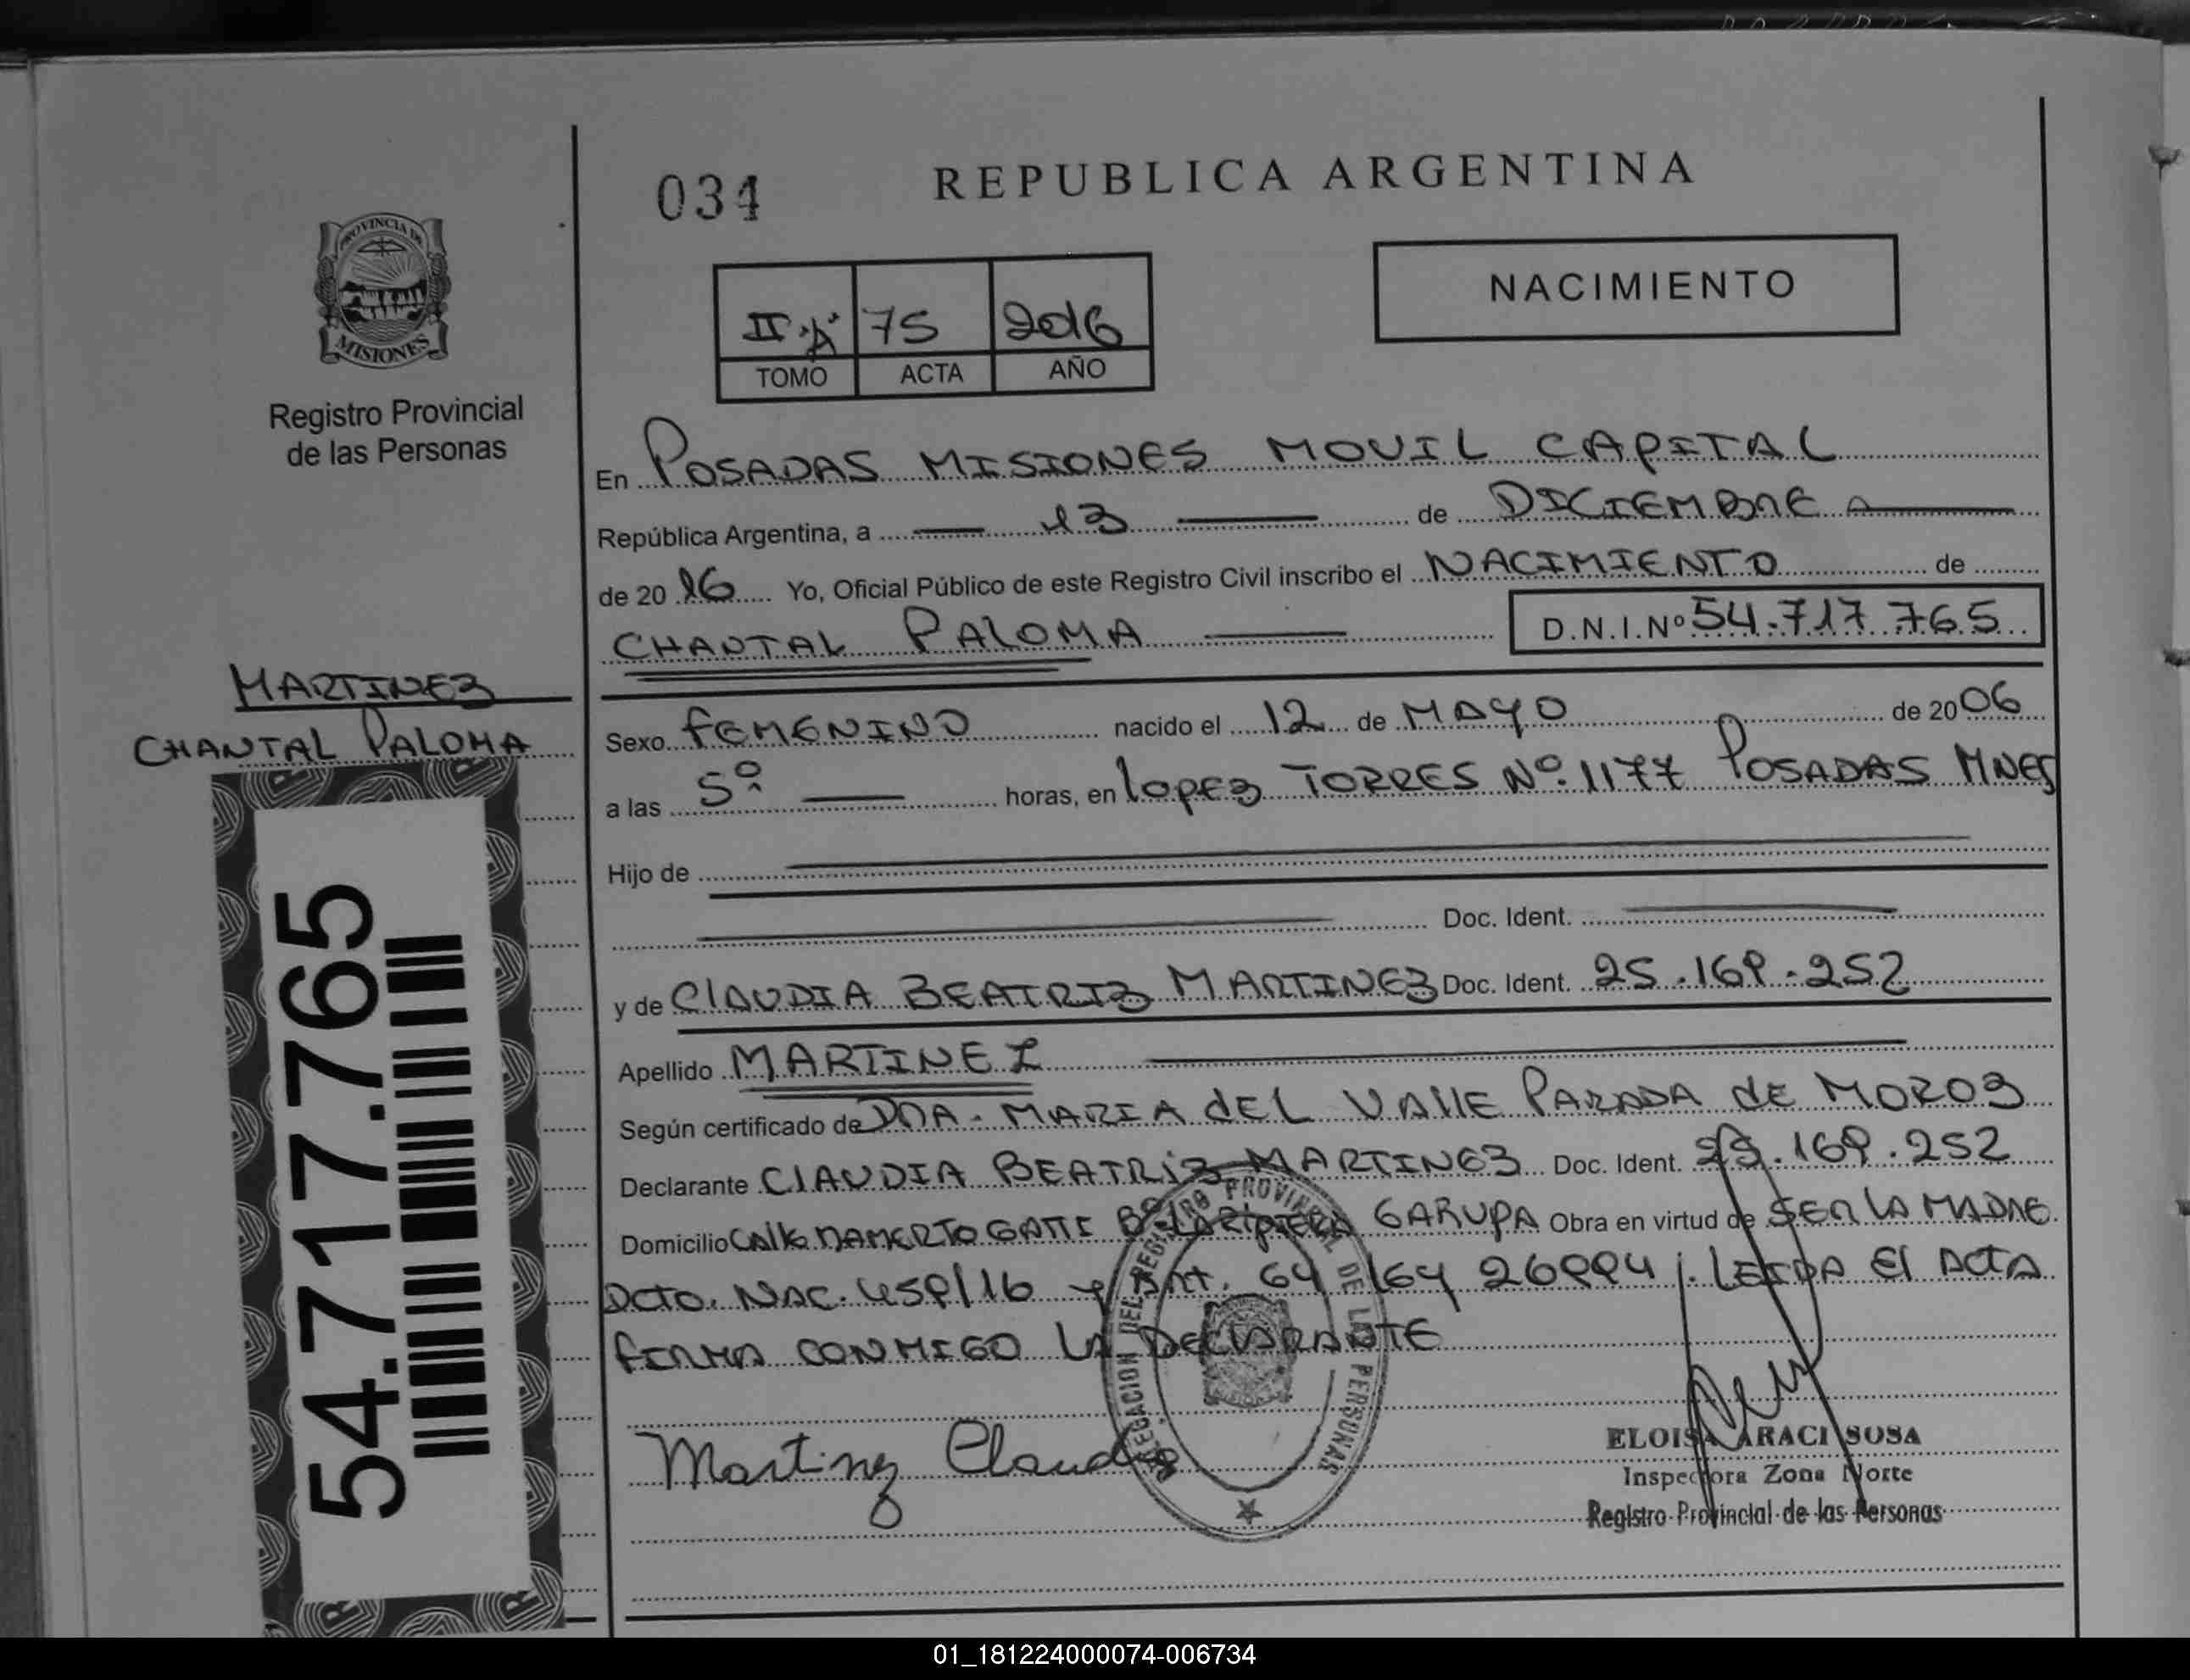 034
REPUBLICA ARGENTINA
PROVINCIA DE
MISIONES
Registro Provincial
de las Personas
II "A" 75 2016
TOMO ACTA AÑO
NACIMIENTO
En POSADAS MISIONES MOVIL CAPITAL
República Argentina, a 13 de DICIEMBRE
de 2016 Yo, Oficial Público de este Registro Civil inscribo el NACIMIENTO de
CHANTAL PALOMA D.N.I.Nº 54.717.765
MARTINEZ
CHANTAL PALOMA
Sexo FEMENINO nacido el 12 de MAYO de 2006
a las 5º horas, en LOPEZ TORRES Nº 1177 POSADAS MNES
Hijo de
Doc. Ident.
y de CLAUDIA BEATRIZ MARTINEZ Doc. Ident. 25.169.252
Apellido MARTINEZ
Según certificado de DRA. MARIA DEL VALLE PARADA DE MOROZ
Declarante CLAUDIA BEATRIZ MARTINEZ Doc. Ident. 25.169.252
Domicilio CALLE MAMERTO GATTI Bº GARUPA Obra en virtud de SER LA MADRE
DCTO. NAC. 459/16 y ANT. 64 164 26994 LEIDA El ACTA
FIRMA CONMIGO LA DECLARANTE
DELEGACION DEL REGISTRO PROVINCIAL DE LAS PERSONAS
Martinez Claudia
ELOISA ARACI SOSA
Inspectora Zona Norte
Registro Provincial de las Personas
54.717.765
01_181224000074-006734